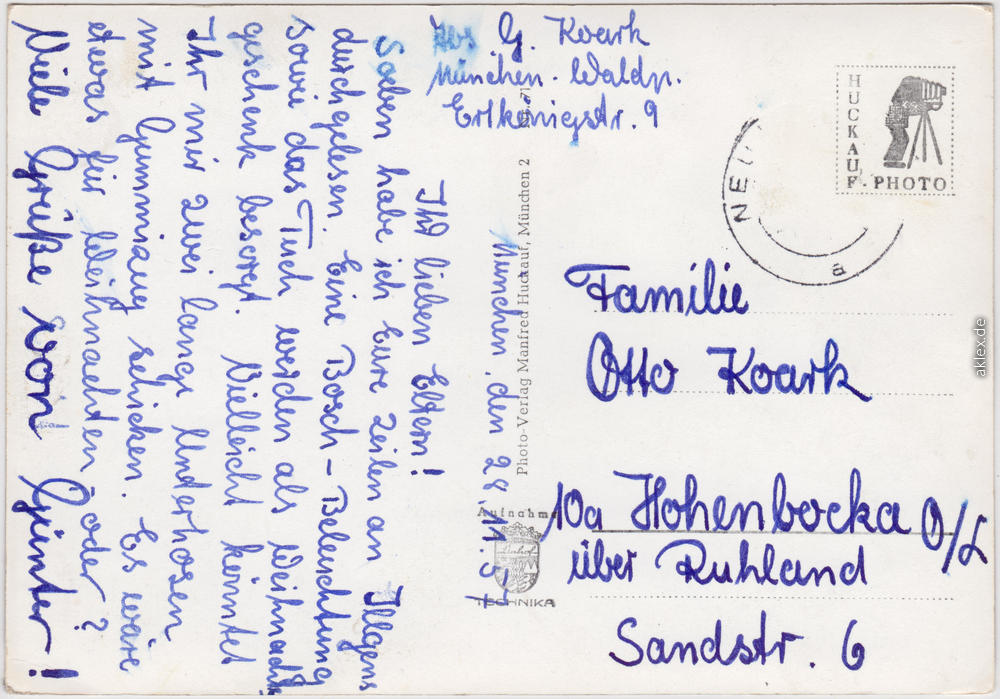 Abs G. Kvark
München-Waldp.
Erlkönigstr. 9
München, den 28.11.57
Ihr lieben Eltern!
Soeben habe ich Eure Zeilen an Illgens
durchgelesen. Eine Bosch-Beleuchtung
sowie das Tuch werden als Weihnachts
geschenk besorgt. Vielleicht könntet
Ihr mir zwei lange Underhosen
mit Gummizug schicken. Es wäre
etwas für Weihnachten oder?
Viele Grüße von Günter!
HUCKAUF-PHOTO
NEU
a
Photo-Verlag Manfred Huckauf, München 2
Aufnahme
Linhof
TECHNIKA
Familie
Otto Kvark
10a Hohenbocka O/L
über Ruhland
Sandstr. 6
aklex.de